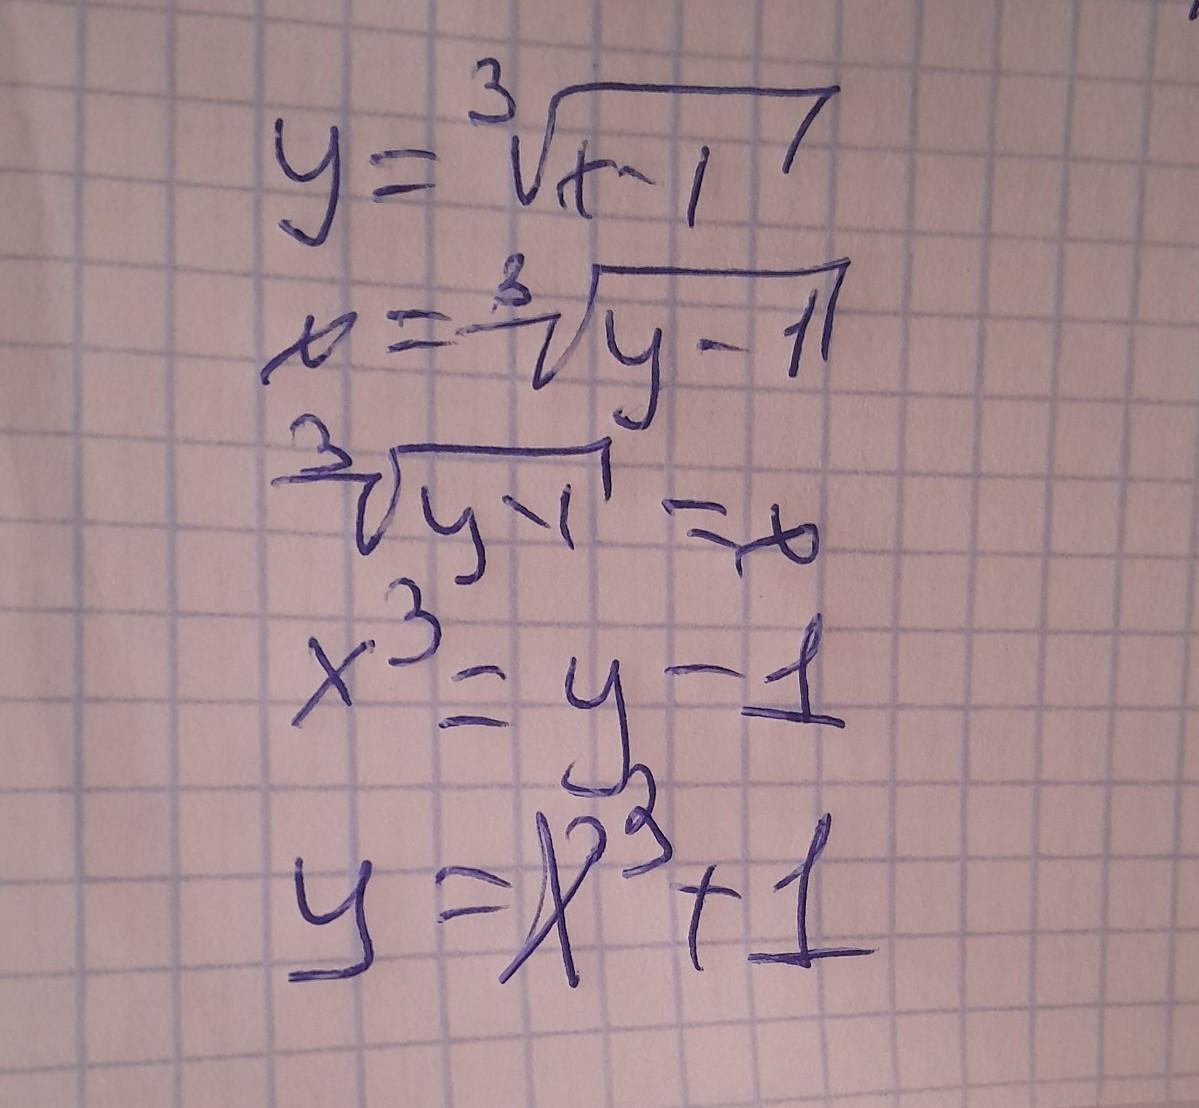 y = ∛(x-1)
x = ∛(y-1)
∛(y-1) = x
x³ = y - 1
y = x³ + 1